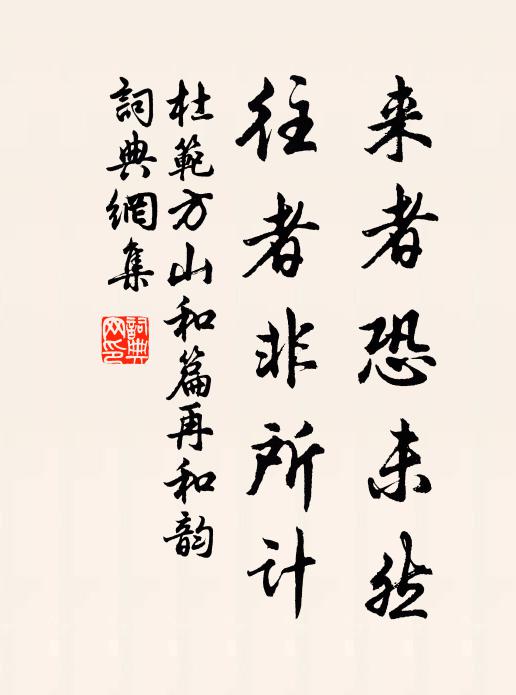 来者恐未然
往者非所计
杜範方山和篇再和韵
詞典網集
詞典网印